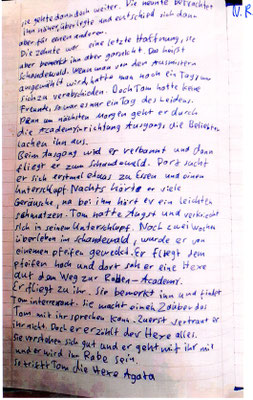 W.R.
sie gehte dann doch weiter. Die neunte betrachtet
ihn näher überlegte und entschied sich dann
aber für einen anderen.
Die zehnte war eine letzte Hoffnung, sie
aber bemerkt ihn aber garnicht. Das heißt
Schandewald. Wenn man von den Ausmistern
angewählt wird, hatte man noch ein Tag, um
sich zu verabschieden. Doch Tom hatte keine
Freunde, so war es nur ein Tag des Leidens.
Denn am nächsten Morgen geht er durch
die Academyinrichtung Ausgang, die Beliebten
lachen ihn aus.
Beim Ausgang wird er verbannt und dann
fliegt er zum Schandewald. Dort sucht
er sich erstmal etwas zu Essen und einen
Unterschlupf. Nachts hörte er viele
Geräusche, na bei ihm hört er ein leichten
schmatzen. Tom hatte Angst und verkriecht
sich in seinem Unterschlupf. Noch zwei Wochen
überleben im Schandewald, wurde er von
einem pfeifen geweckt. Er fliegt dem
pfeifen hoch und dort sah er eine Hexe
auf dem Weg zur Raben-Academy.
Er fliegt zu ihr. Sie bemerkt ihn und findet
Tom interresant. Sie macht einen Zauber das
Tom mit ihr sprechen kann. Zuerst vertraut er
ihr nicht. Doch er erzählt der Hexe alles.
Sie verstehen sich gut und er geht mit ihr mit
und er wird ihr Rabe sein.
So trifft Tom die Hexe Agata